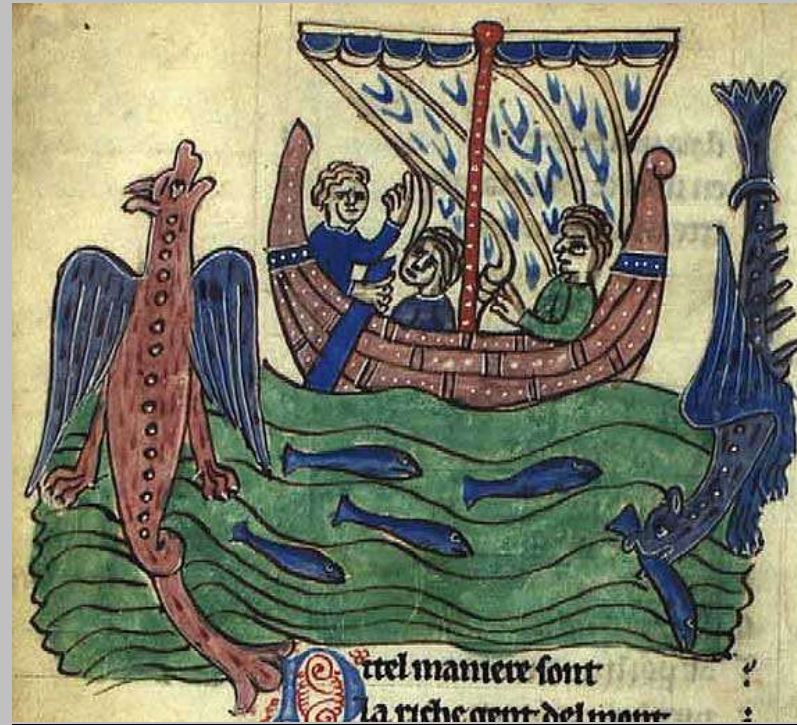 Ditel maniere sont
La riche gent del mont